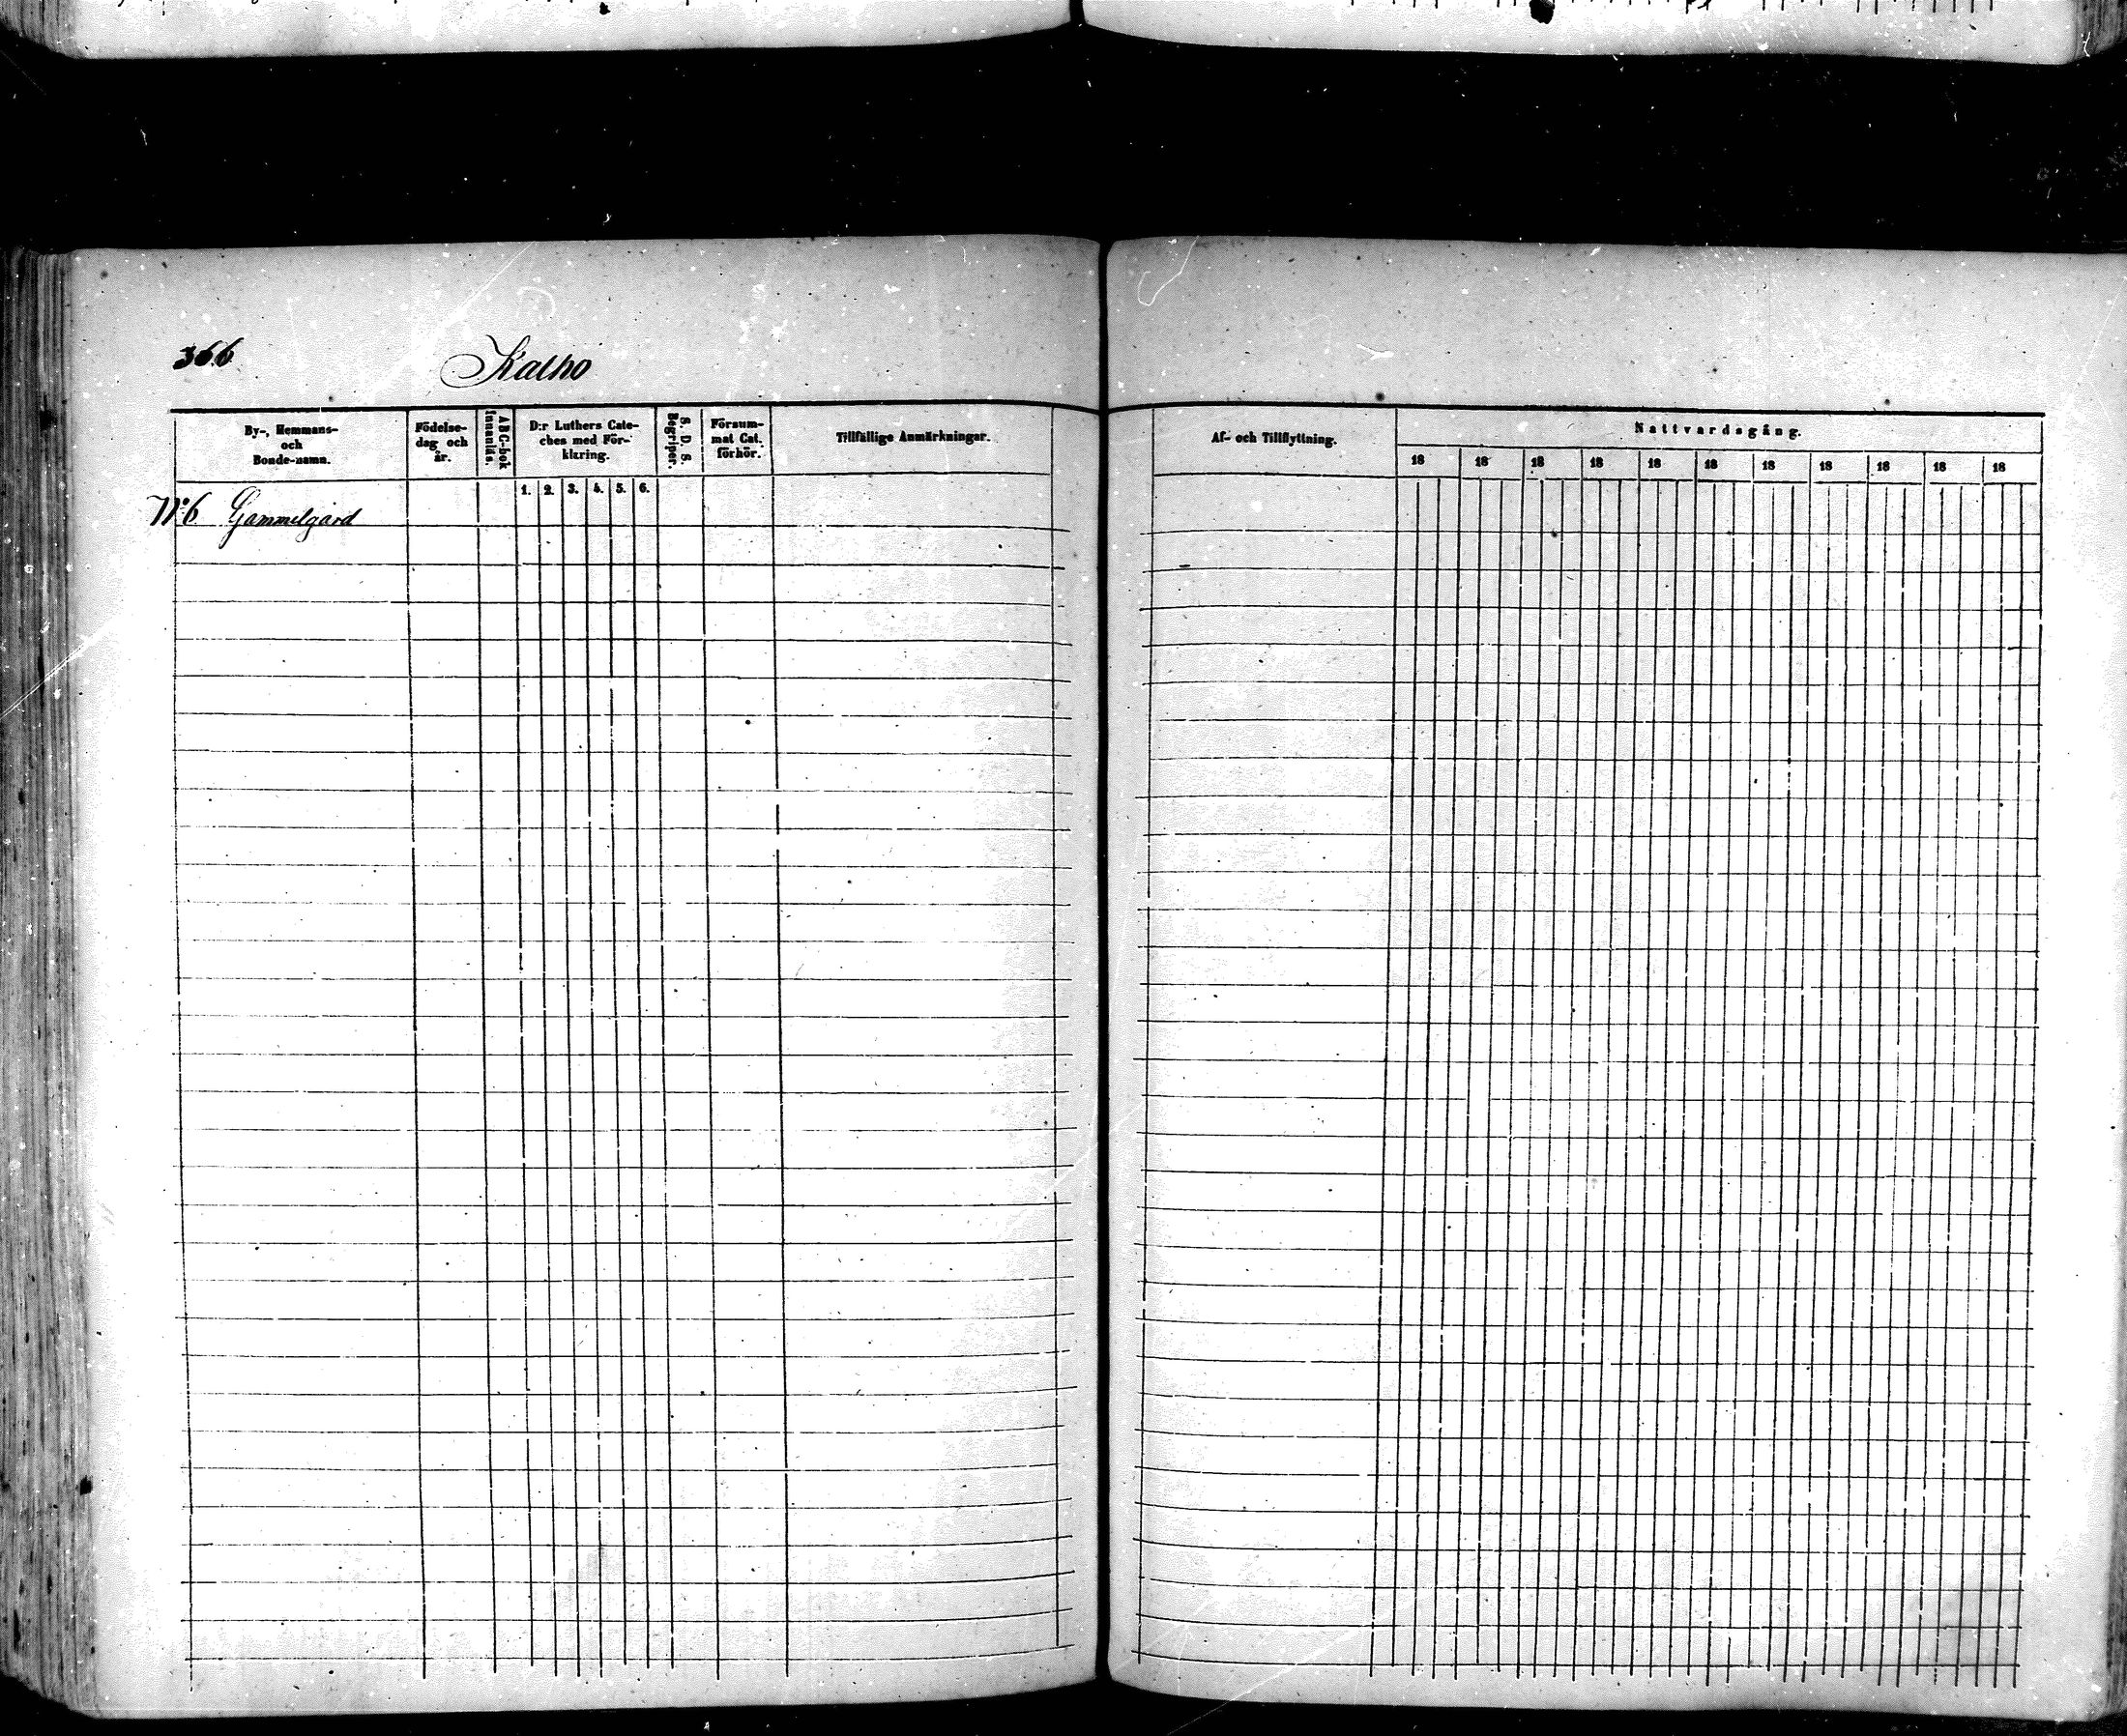 366
Kalho
By-, Hemmans-
och
Bonde-namn.
Födelse-
dag och
år.
ABC-bok
Innanläs.
D:r Luthers Cate-
ches med För-
klaring.
S. D. S.
Begriper.
Försum-
mat Cat.
förhör.
Tillfällige Anmärkningar.
Af- och Tillflyttning.
Nattvardsgång.
18 18 18 18 18 18 18 18 18 18 18
1. 2. 3. 4. 5. 6.
N:6 Gammelgård